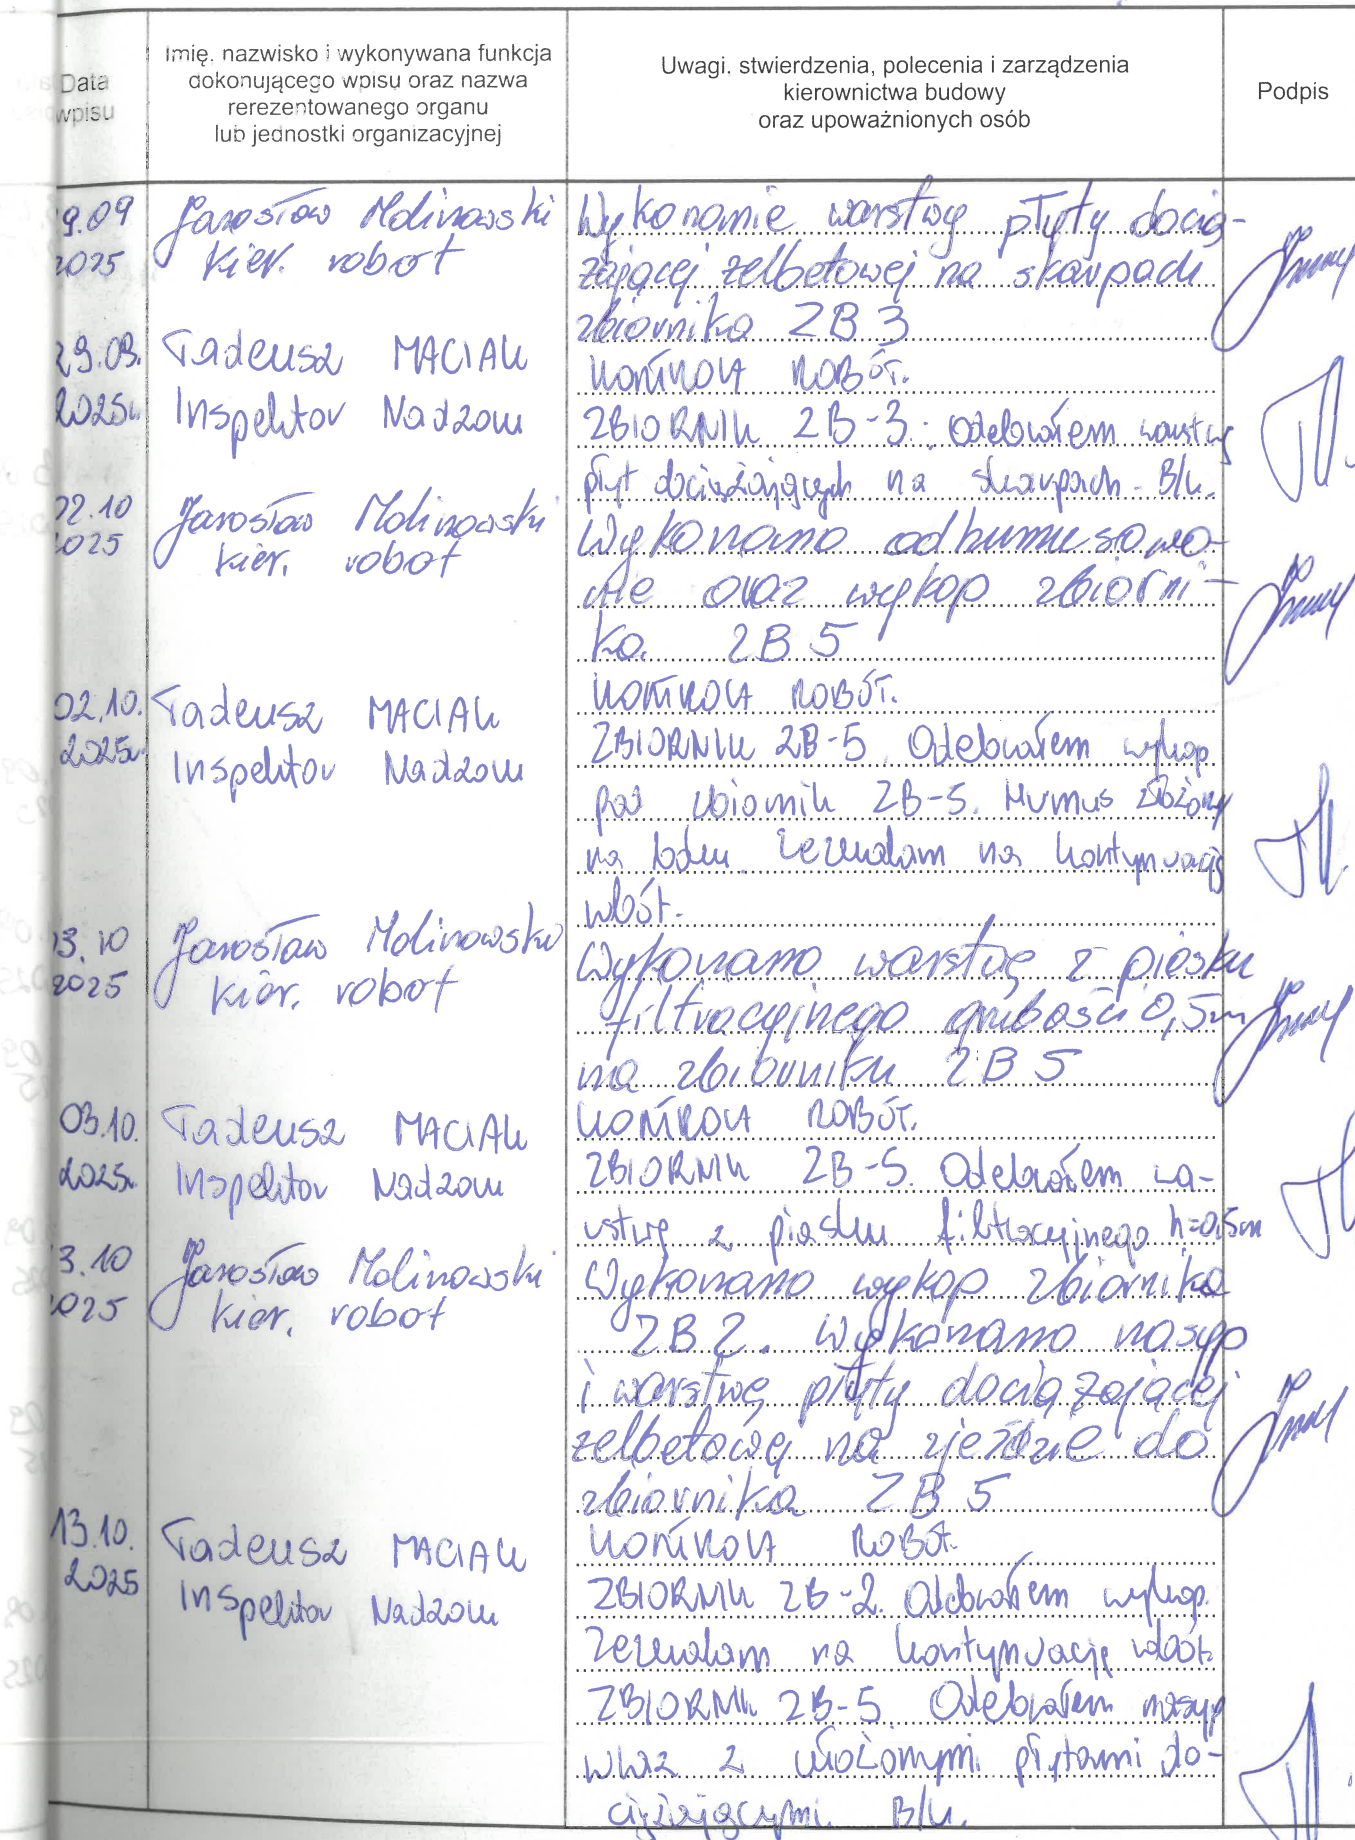 Data
wpisu
Imię, nazwisko i wykonywana funkcja
dokonującego wpisu oraz nazwa
rerezentowanego organu
lub jednostki organizacyjnej
Uwagi, stwierdzenia, polecenia i zarządzenia
kierownictwa budowy
oraz upoważnionych osób
Podpis
9.09
2025
Jarosław Molinowski
kier. robot
Wykonanie warstwy płyty docią-
żającej żelbetowej na skarpach
zbiornika ZB 3
29.09.
2025r.
Tadeusz MACIAK
Inspektor Nadzoru
KONTROLA ROBÓT.
ZBIORNIK ZB-3. Odebrałem warstwę
płyt dociążających na skarpach. B/u.
02.10
2025
Jarosław Molinowski
kier. robot
Wykonano odhumusowa-
nie oraz wykop zbiorni-
ka ZB 5
02.10.
2025r.
Tadeusz MACIAK
Inspektor Nadzoru
KONTROLA ROBÓT.
ZBIORNIK ZB-5. Odebrałem wykop
pod zbiornik ZB-5. Humus złożony
na boku. Zezwalam na kontynuację
robót.
3.10
2025
Jarosław Molinowski
kier. robot
Wykonano warstwę z piasku
filtracyjnego grubości 0,5m
na zbiorniku ZB 5
03.10.
2025r.
Tadeusz MACIAK
Inspektor Nadzoru
KONTROLA ROBÓT.
ZBIORNIK ZB-5. Odebrałem wa-
rstwę z piasku filtracyjnego h=0,5m
3.10
2025
Jarosław Molinowski
kier. robot
Wykonano wykop zbiornika
ZB 2. Wykonano nasyp
i warstwę płyty dociążającej
żelbetową na zjeździe do
zbiornika ZB 5
13.10.
2025
Tadeusz MACIAK
Inspektor Nadzoru
KONTROLA ROBÓT.
ZBIORNIK ZB-2. Odebrałem wykop.
Zezwalam na kontynuację robót.
ZBIORNIK ZB-5. Odebrałem nasyp
wraz z ułożonymi płytami do-
ciążającymi. B/u.